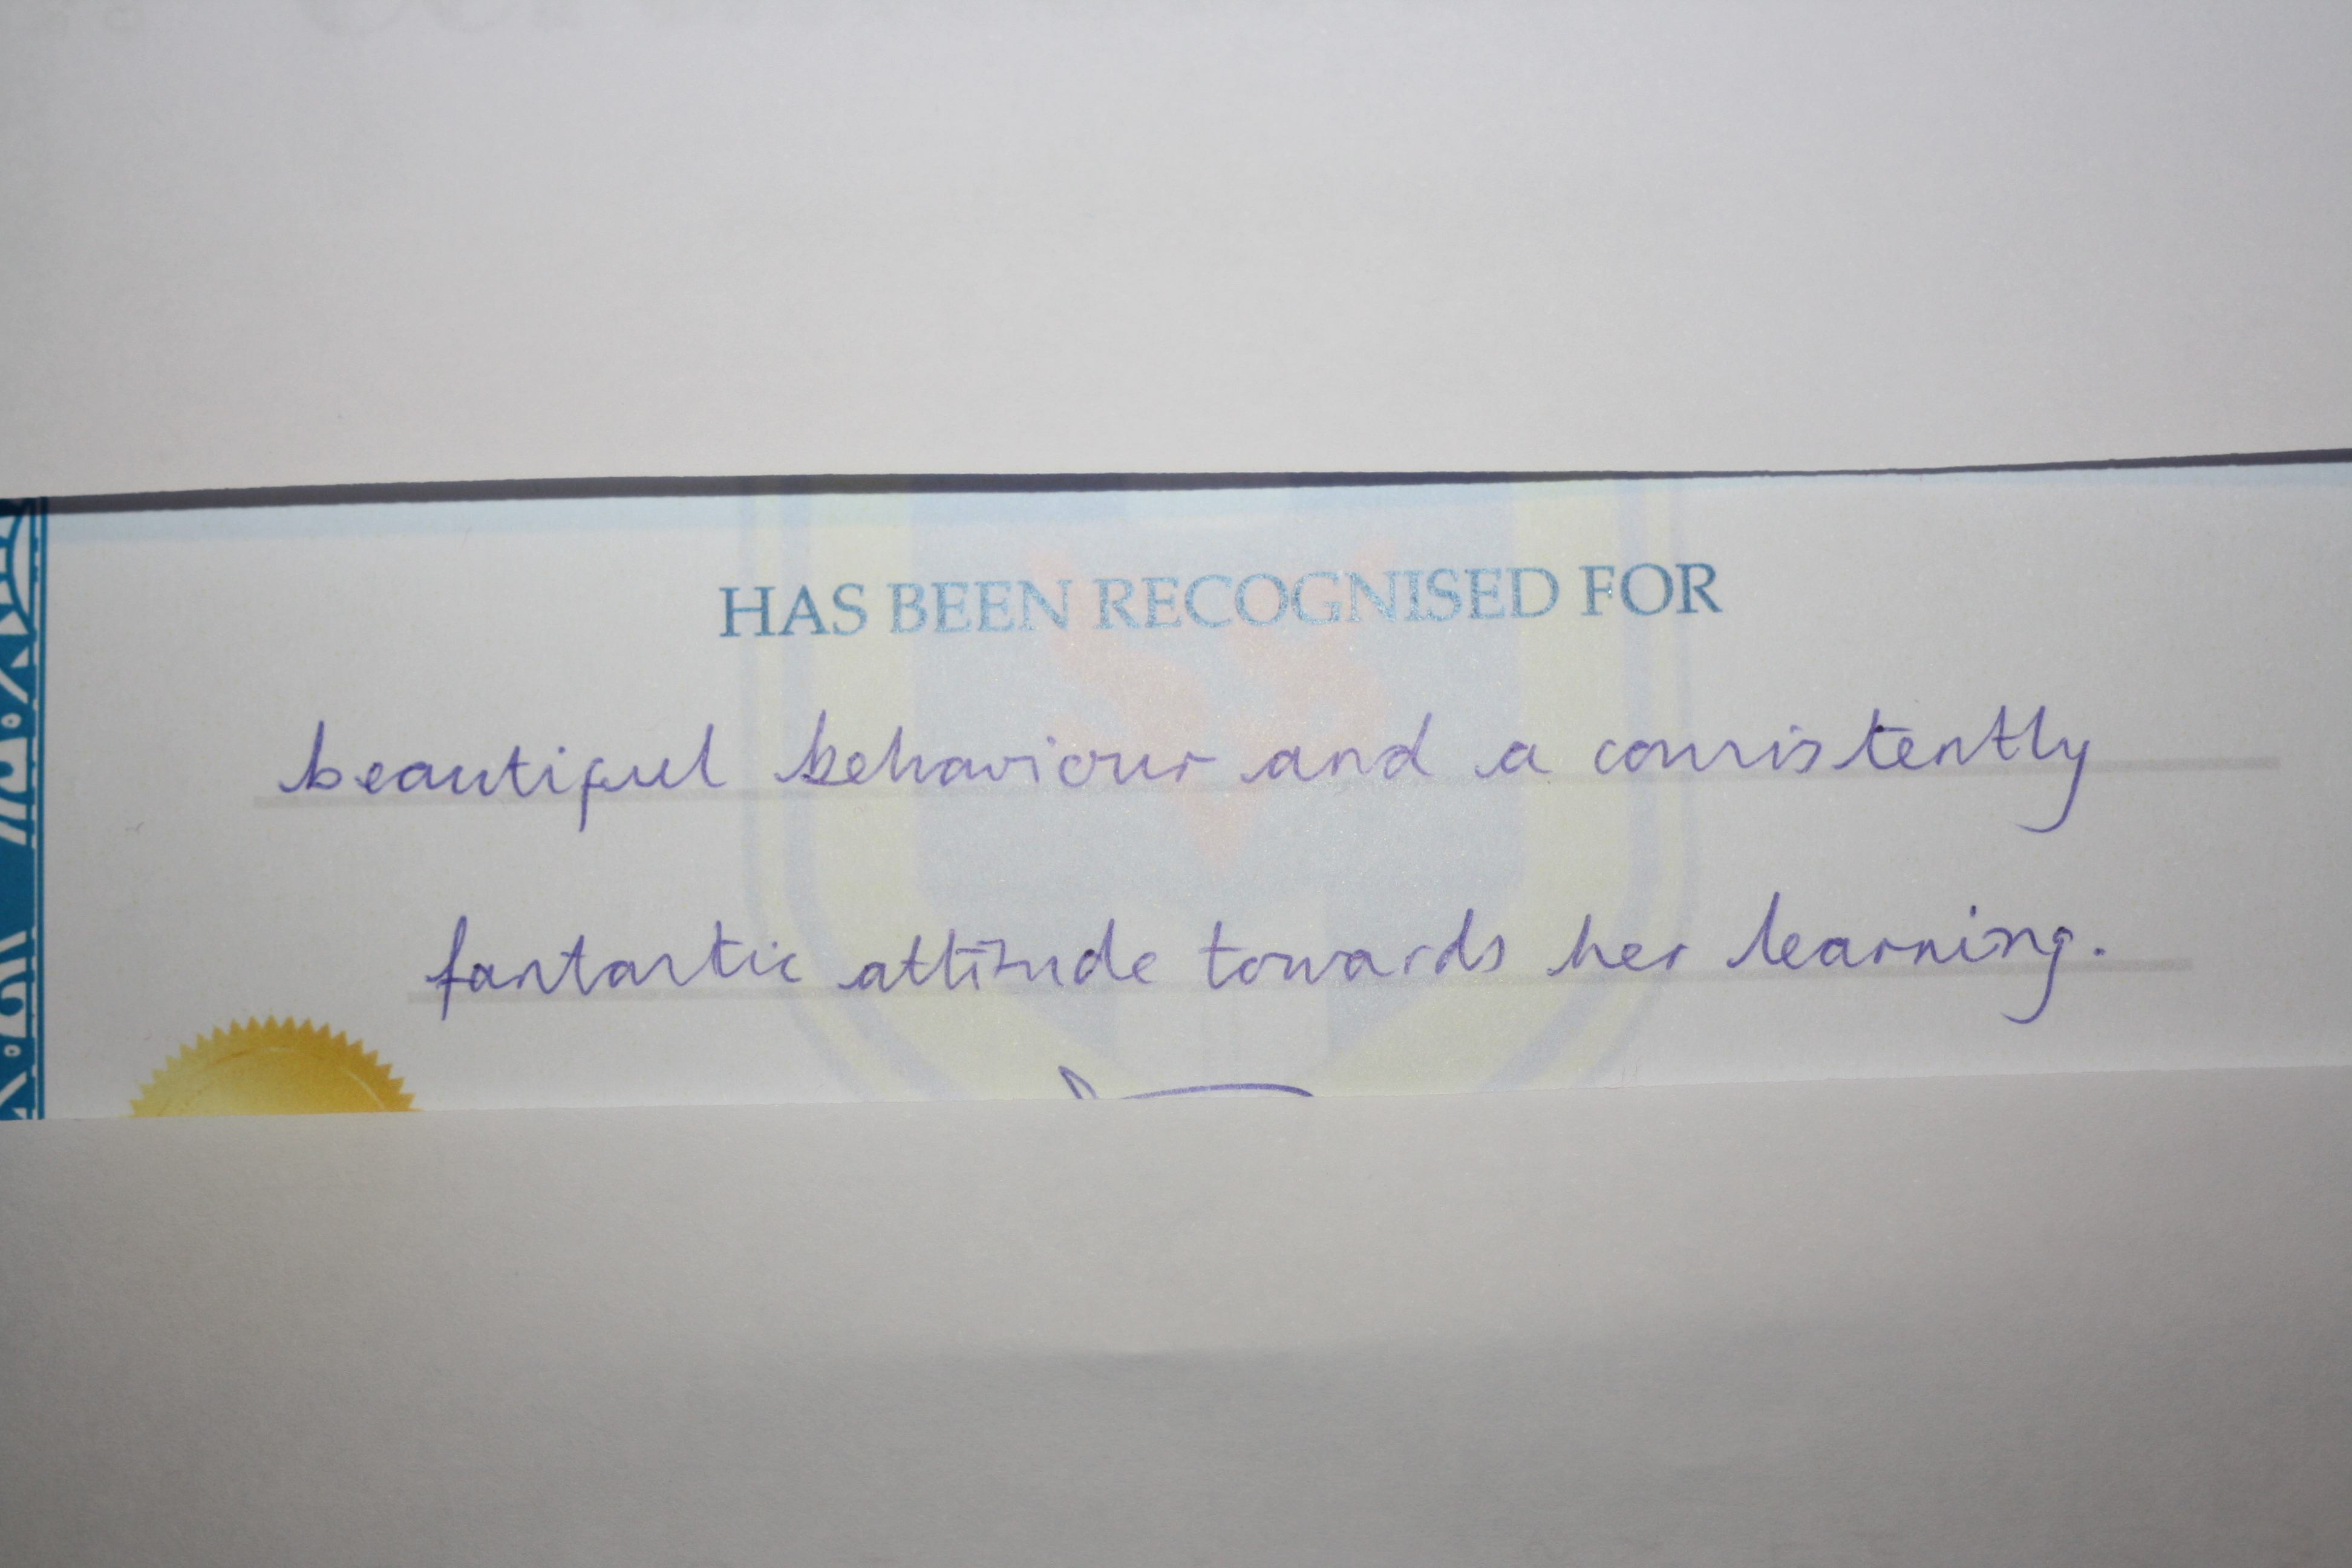 HAS BEEN RECOGNISED FOR
beautiful behaviour and a consistently
fantastic attitude towards her learning.